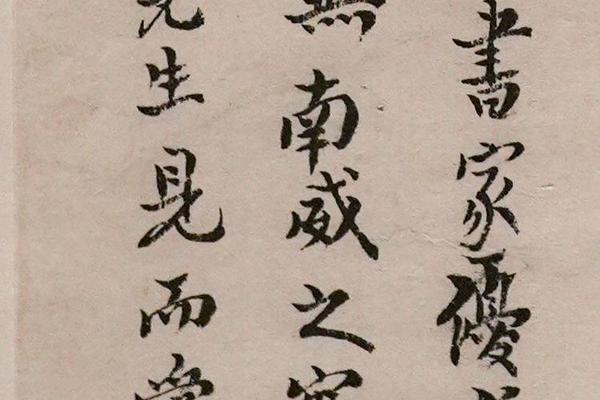 書家優
無南威之
先生見而